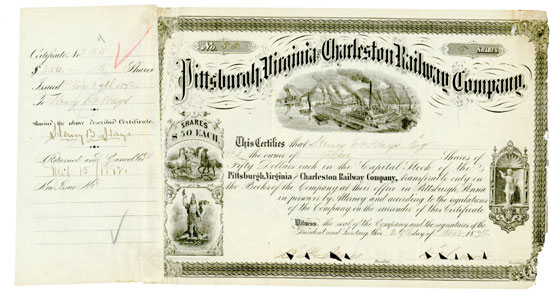 Certificate No 55
$350.- Shares
Issued Nov 29th 18
To Henry B. Hays
Having the above described Certificate
Henry B. Hays
Returned and Cancelled
18
New Issue No
No. 55
SHARES
Pittsburgh, Virginia & Charleston Railway Company.
SHARES
$50 EACH
This Certifies that Henry B Hays Esq
is the owner of Shares of
Fifty Dollars each in the Capital Stock of the
Pittsburgh, Virginia and Charleston Railway Company, transferable only on
the Books of the Company at their office in Pittsburgh, Penna
in person or by Attorney and according to the regulations
of the Company, on the surrender of this Certificate
Witness, the seal of the Company and the signatures of the
President and Secretary, this 29th day of Nov 18